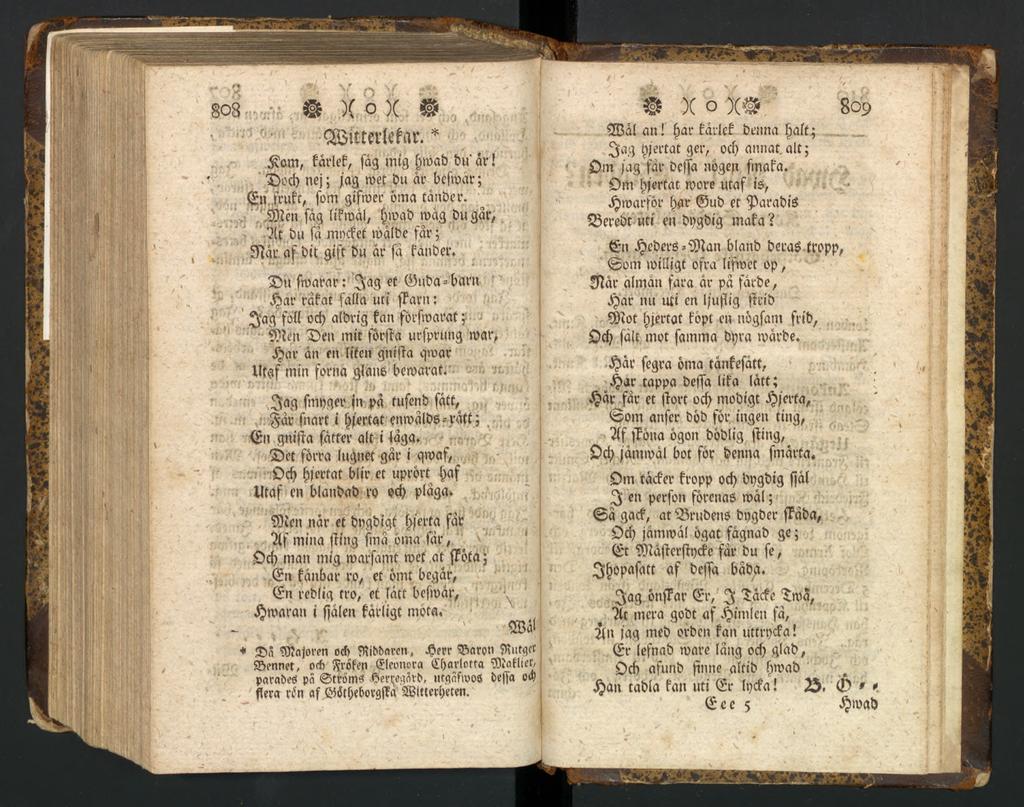 808
Witterlekar. *
Kom, kärlek, säg mig hwad du är!
Doch nej; jag wet du är beswär;
En frukt, som gifwer öma tänder.
Men säg likwäl, hwad wäg du går,
At du så mycket wälde får;
När af dit gift du är så känder.
Du swarar: Jag et Guda-barn
Har råkat falla uti skarn:
Jag föll och aldrig kan förswarat;
Men Den mit första ursprung war,
Har än en liten gnista qwar
Utaf min forna glans bewarat.
Jag smyger in på tusend sätt,
Får snart i hjertat enwålds-rätt;
En gnista sätter alt i låga.
Det förra lugnet går i qwaf,
Och hjertat blir et uprört haf
Utaf en blandad ro och plåga.
Men när et dygdigt hjerta får
Af mina sting små öma sår,
Och man mig warsamt wet at sköta;
En känbar ro, et ömt begär,
En redlig tro, et lätt beswär,
Hwaran i själen kärligt möta.
Wäl
* Då Majoren och Riddaren, Herr Baron Rutger
Bennet, och Fröken Eleonora Charlotta Maklier,
parades på Ströms Herregård, utgåfwos dessa och
flera rön af Götheborgska Witterheten.
809
Wäl an! har kärlek denna halt;
Jag hjertat ger, och annat alt;
Om jag får dessa nögen smaka.
Om hjertat wore utaf is,
Hwarför har Gud et Paradis
Beredt uti en dygdig maka?
En Heders-Man bland deras tropp,
Som willigt ofra lifwet op,
När almän fara är på färde,
Har nu uti en ljuflig strid
Mot hjertat köpt en nögsam frid,
Och sält mot samma dyra wärde.
Här segra öma tänkesätt,
Här tappa dessa lika lätt;
Här får et stort och modigt Hjerta,
Som anser död för ingen ting,
Af sköna ögon dödlig sting,
Och jämwäl bot för denna smärta.
Om täcker kropp och dygdig själ
I en person förenas wäl;
Så gack, at Brudens dygder skåda,
Och jämwäl ögat fägnad ge;
Et Mästerstycke får du se,
Ihopasatt af dessa båda.
Jag önskar Er, I Täcke Twå,
At mera godt af Himlen få,
Än jag med orden kan uttrycka!
Er lefnad ware lång och glad,
Och afund finne altid hwad
Han tadla kan uti Er lycka! B. Ö - -
Eee 5 Hwad